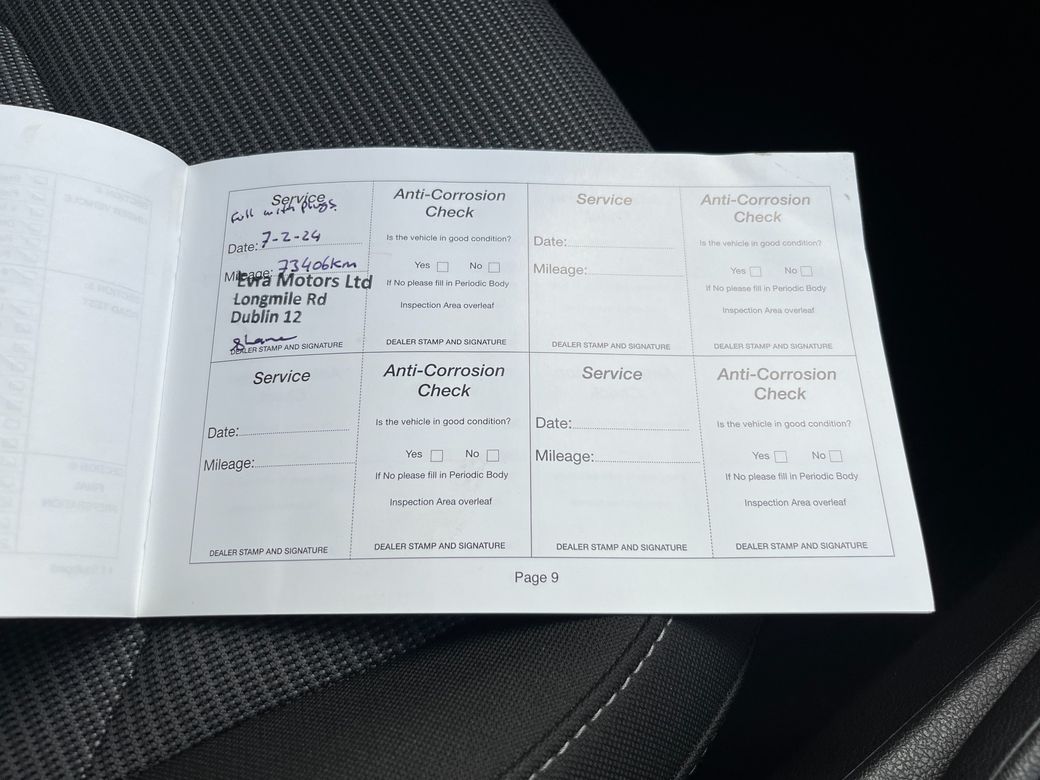 Service
Full with plugs
Date: 7-2-24
Mileage: 73406km
Evra Motors Ltd
Longmile Rd
Dublin 12
Shane
DEALER STAMP AND SIGNATURE
Anti-Corrosion
Check
Is the vehicle in good condition?
Yes No
If No please fill in Periodic Body
Inspection Area overleaf
DEALER STAMP AND SIGNATURE
Service
Date:
Mileage:
DEALER STAMP AND SIGNATURE
Anti-Corrosion
Check
Is the vehicle in good condition?
Yes No
If No please fill in Periodic Body
Inspection Area overleaf
DEALER STAMP AND SIGNATURE
Service
Date:
Mileage:
DEALER STAMP AND SIGNATURE
Anti-Corrosion
Check
Is the vehicle in good condition?
Yes No
If No please fill in Periodic Body
Inspection Area overleaf
DEALER STAMP AND SIGNATURE
Service
Date:
Mileage:
DEALER STAMP AND SIGNATURE
Anti-Corrosion
Check
Is the vehicle in good condition?
Yes No
If No please fill in Periodic Body
Inspection Area overleaf
DEALER STAMP AND SIGNATURE
Page 9